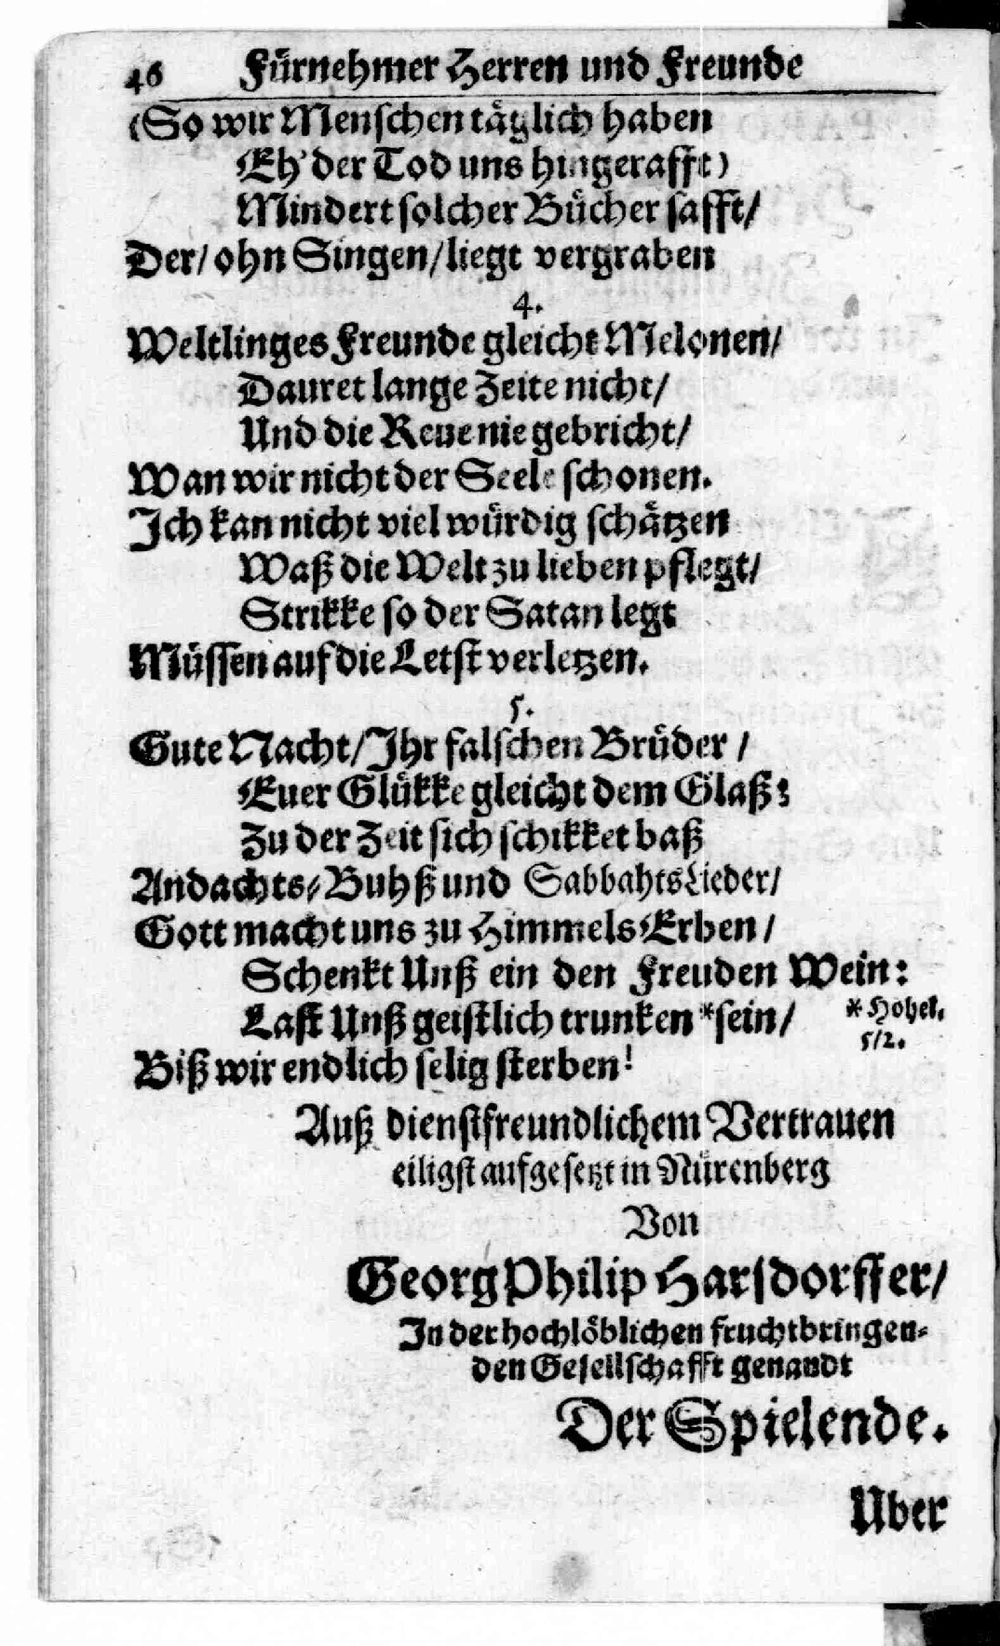 46 Fürnehmer Herren und Freunde
(So wir Menschen täglich haben
Eh' der Tod uns hingerafft)
Mindert solcher Bücher safft/
Der/ ohn Singen/ liegt vergraben
4.
Weltlinges Freunde gleicht Melonen/
Dauret lange Zeite nicht/
Und die Reue nie gebricht/
Wan wir nicht der Seele schonen.
Ich kan nicht viel würdig schätzen
Waß die Welt zu lieben pflegt/
Strikke so der Satan legt
Müssen auf die Letst verletzen.
5.
Gute Nacht/ Ihr falschen Brüder /
Euer Glükke gleicht dem Glaß:
Zu der Zeit sich schikket baß
Andachts-Buhß und SabbahtsLieder/
Gott macht uns zu Himmels Erben /
Schenkt Unß ein den Freuden Wein:
Last Unß geistlich trunken *sein/ *Hohel.
5/2.
Biß wir endlich selig sterben!
Auß dienstfreundlichem Vertrauen
eiligst aufgesetzt in Nürenberg
Von
Georg Philip Harsdorffer/
In der hochlöblichen fruchtbringen-
den Gesellschafft genandt
Der Spielende.
Uber